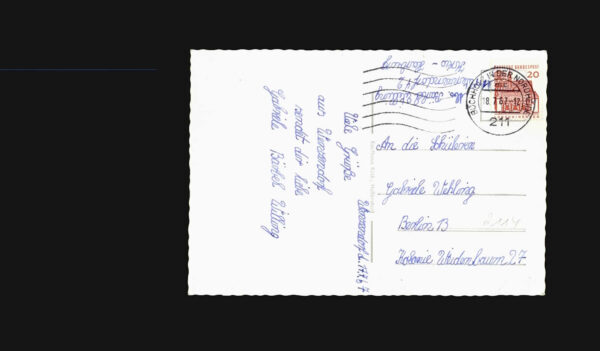 Wenzendorf d. 17.7.67
Viele Grüße
aus Wenzendorf
sendet dir liebe
Gabriele Bärbel Witting
DEUTSCHE BUNDESPOST
20
BUCHHOLZ IN DER NORDHEIDE
18.7.67
211
An die Schülerin
Gabriele Wehling
Berlin 13
Kolonie Weidenbaum 27